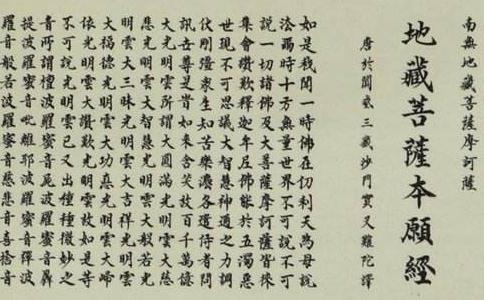 南無地藏菩薩摩訶薩
地藏菩薩本願經
唐於闐國三藏沙門實叉難陀譯
如是我聞一時佛在忉利天為母說
法爾時十方無量世界不可說不可
說一切諸佛及大菩薩摩訶薩皆來
集會讚歎釋迦牟尼佛能於五濁惡
世現不可思議大智慧神通之力調
伏剛彊衆生知苦樂灋各遣侍者問
訊世尊是時如來含笑放百千萬億
大光明雲所謂大圓滿光明雲大慈
悲光明雲大智慧光明雲大般若光
明雲大三昧光明雲大吉祥光明雲
大福德光明雲大功德光明雲大歸
依光明雲大讚歎光明雲放如是等
不可說光明雲已又出種種微妙之
音所謂檀波羅蜜音尸波羅蜜音羼
提波羅蜜音毗離耶波羅蜜音禪波
羅音般若波羅蜜音慈悲音喜捨音